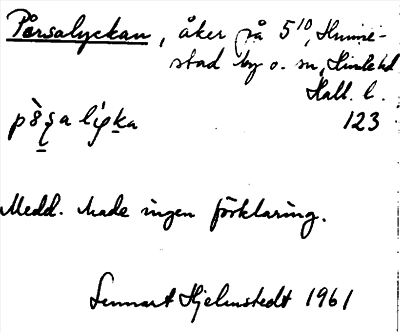 Pärsalyckan, åker på 5¹⁰, Hunne-
stad by o. sn, Himle hd
Hall. l.
123
Medd. hade ingen förklaring.
Lennart Hjelmstedt 1961